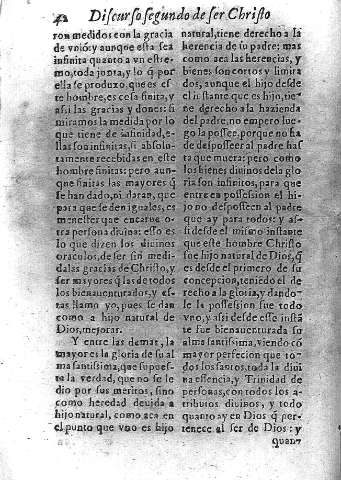 42 Discurso segundo de ser Christo
ron medidos con la gracia
de vniõ: y aunque esta sea
infinita quanto a vn estre-
mo, toda junta, y lo q̃ por
ella se produxo, que es es
te hombre, es cosa finita, y
assi las gracias y dones: si
miramos la medida por lo
que tiene de infinidad, e-
llas son infinitas, si absolu-
tamente recebidas en este
hombre finitas: pero aun-
que finitas las mayores q̃
se han dado, ni daran, que
para que se den iguales, es
menester que encarne o-
tra persona diuina: esso es
lo que dizen los diuinos
oraculos, de ser sin medi-
das las gracias de Christo, y
ser mayores q̃ las de todos
los bienauenturados, y es-
tas llamo yo, pues se dan
como a hijo natural de
Dios, mejoras.
Y entre las demas, la
mayor es la gloria de su al
ma santissima, que supues-
ta la verdad, que no se le
dio por sus meritos, sino
como heredad deuida a
hijo natural, como aca en
el punto que vno es hijo
natural, tiene derecho a la
herencia de su padre; mas
como aca las herencias, y
bienes son cortos y limita
dos, aunque el hijo desde
el instante que es hijo, tie-
ne derecho a la hazienda
del padre, no empero lue-
go la possee, porque no ha
de desposseer al padre has
ta que muera: pero como
los bienes diuinos de la glo
ria son infinitos, para que
entre en possession el hi-
jo, no desposseen al padre
que ay para todos: y as-
si desde el mismo instante
que este hombre Christo
fue hijo natural de Dios, q̃
es desde el primero de su
concepcion, teniẽdo el de-
recho a la gloria, y dando-
le la possession fue todo
vno, y assi desde esse instã
te fue bienauenturada su
alma santissima, viendo cõ
mayor perfecion que to-
dos los santos, toda la diui
na essencia, y Trinidad de
personas, con todos los a-
tributos diuinos, y todo
quanto ay en Dios q̃ per-
tenece al ser de Dios: y
quan-